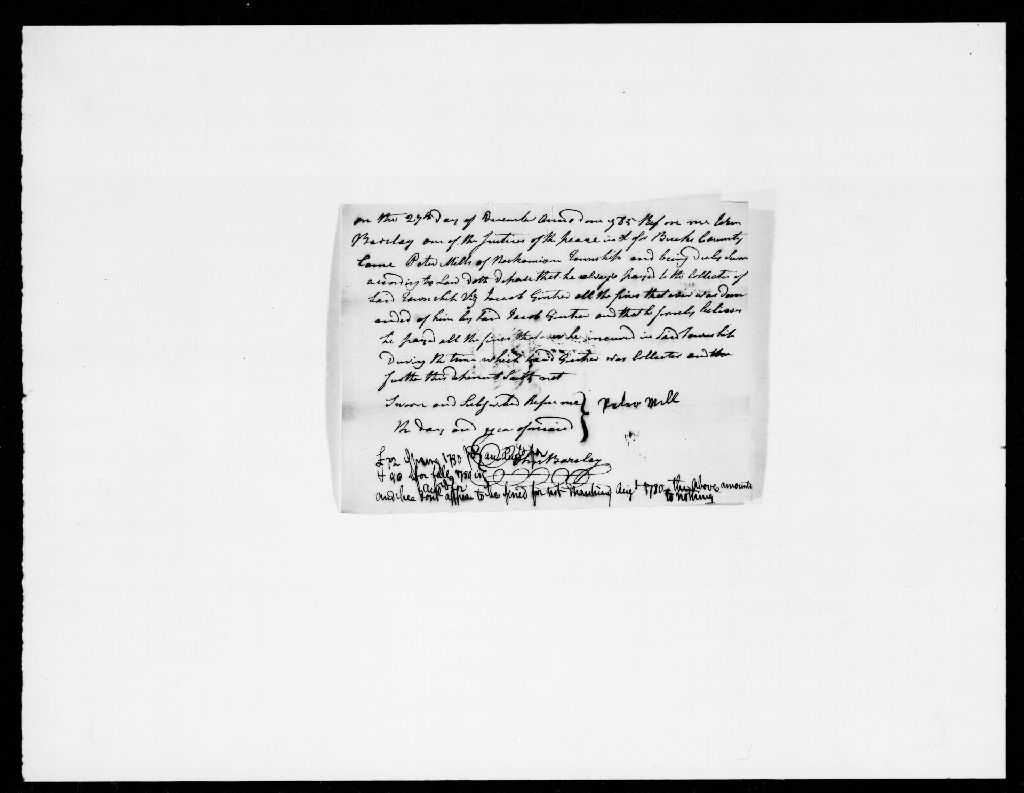 on the 27th Day of December Anno dom 1785 Before me
Barclay one of the Justices of the peace in & for Bucks County
Came Peter Mills of Township and being duly Sworn
according to Law doth depose that he always payed to the Collector of
Said Township Viz Jacob all the fines that ever was dem
anded of him by Said Jacob and that he firmly believes
he payed all the fines that ever he incured in Said Township
During the time which Said was Collector and
further this deponent Saith not
Sworn and Subscribed Before me } Peter Mill
the day and year aforesaid
£72 Spring 1780
& 90 for fall 1780 Barclay
and hee dont appear to be fined for not Marching Augt 1780 the Above amounts
to nothing